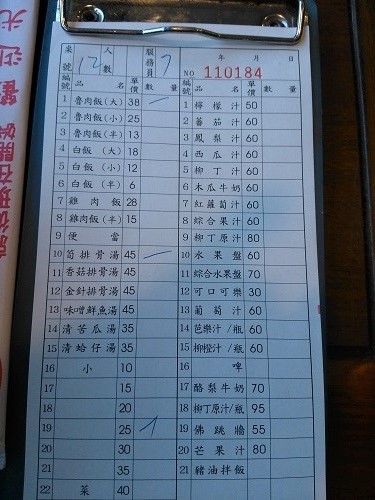 桌號 12 人數 服務員 7 年 月 日
NO 110184
編號 品 名 單價 數 量 編號 品 名 單價 數 量
1 魯肉飯(大) 38 一 1 檸檬汁 50
2 魯肉飯(小) 25 2 蕃茄汁 60
3 魯肉飯(半) 13 3 鳳梨汁 60
4 白飯(大) 18 4 西瓜汁 60
5 白飯(小) 12 5 柳丁汁 60
6 白飯(半) 6 6 木瓜牛奶 60
7 雞肉飯 28 7 紅蘿蔔汁 60
8 雞肉飯(半) 15 8 綜合果汁 60
9 便當 9 柳丁原汁 80
10 筍排骨湯 45 一 10 水果盤 60
11 香菇排骨湯 45 11 綜合水果盤 70
12 金針排骨湯 45 12 可口可樂 30
13 味噌鮮魚湯 45 13 葡萄汁 60
14 清苦瓜湯 35 14 芭樂汁/瓶 60
15 清蛤仔湯 35 15 柳橙汁/瓶 60
16 小 10 16 啤
17 15 17 酪梨牛奶 70
18 20 18 柳丁原汁/瓶 95
19 25 1 19 佛跳牆 55
20 30 20 芒果汁 80
21 35 21 豬油拌飯
22 菜 40